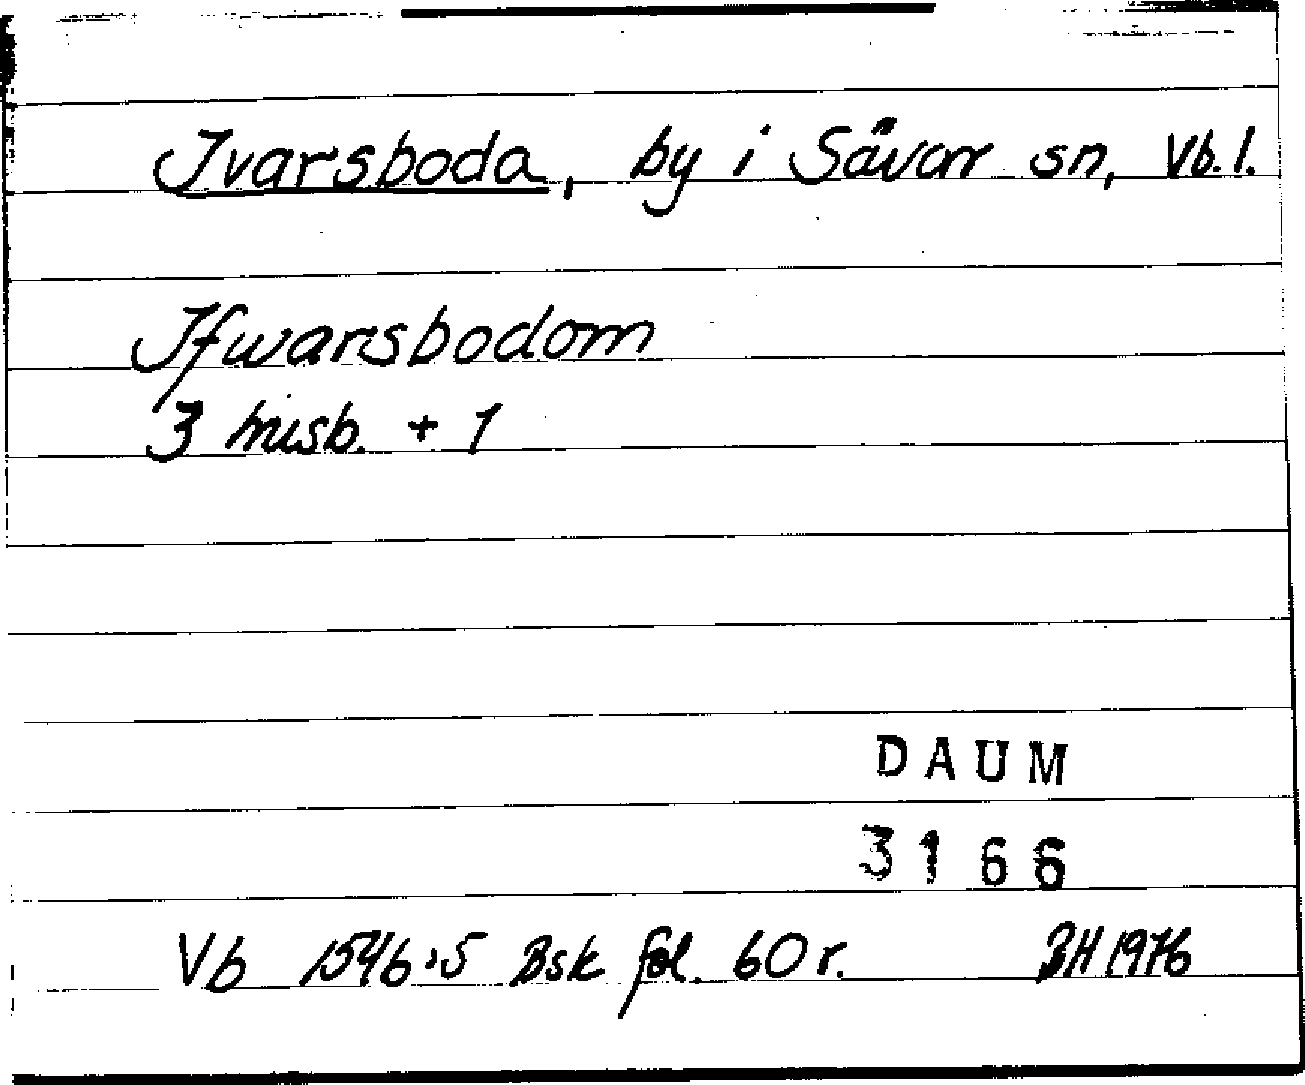 Ivarsboda, by i Sävar sn, Vb. l.
Ifwarsbodom
3 husb. + 1
DAUM
3166
Vb 1546:5 Bsk fol. 60 r. BH 1976